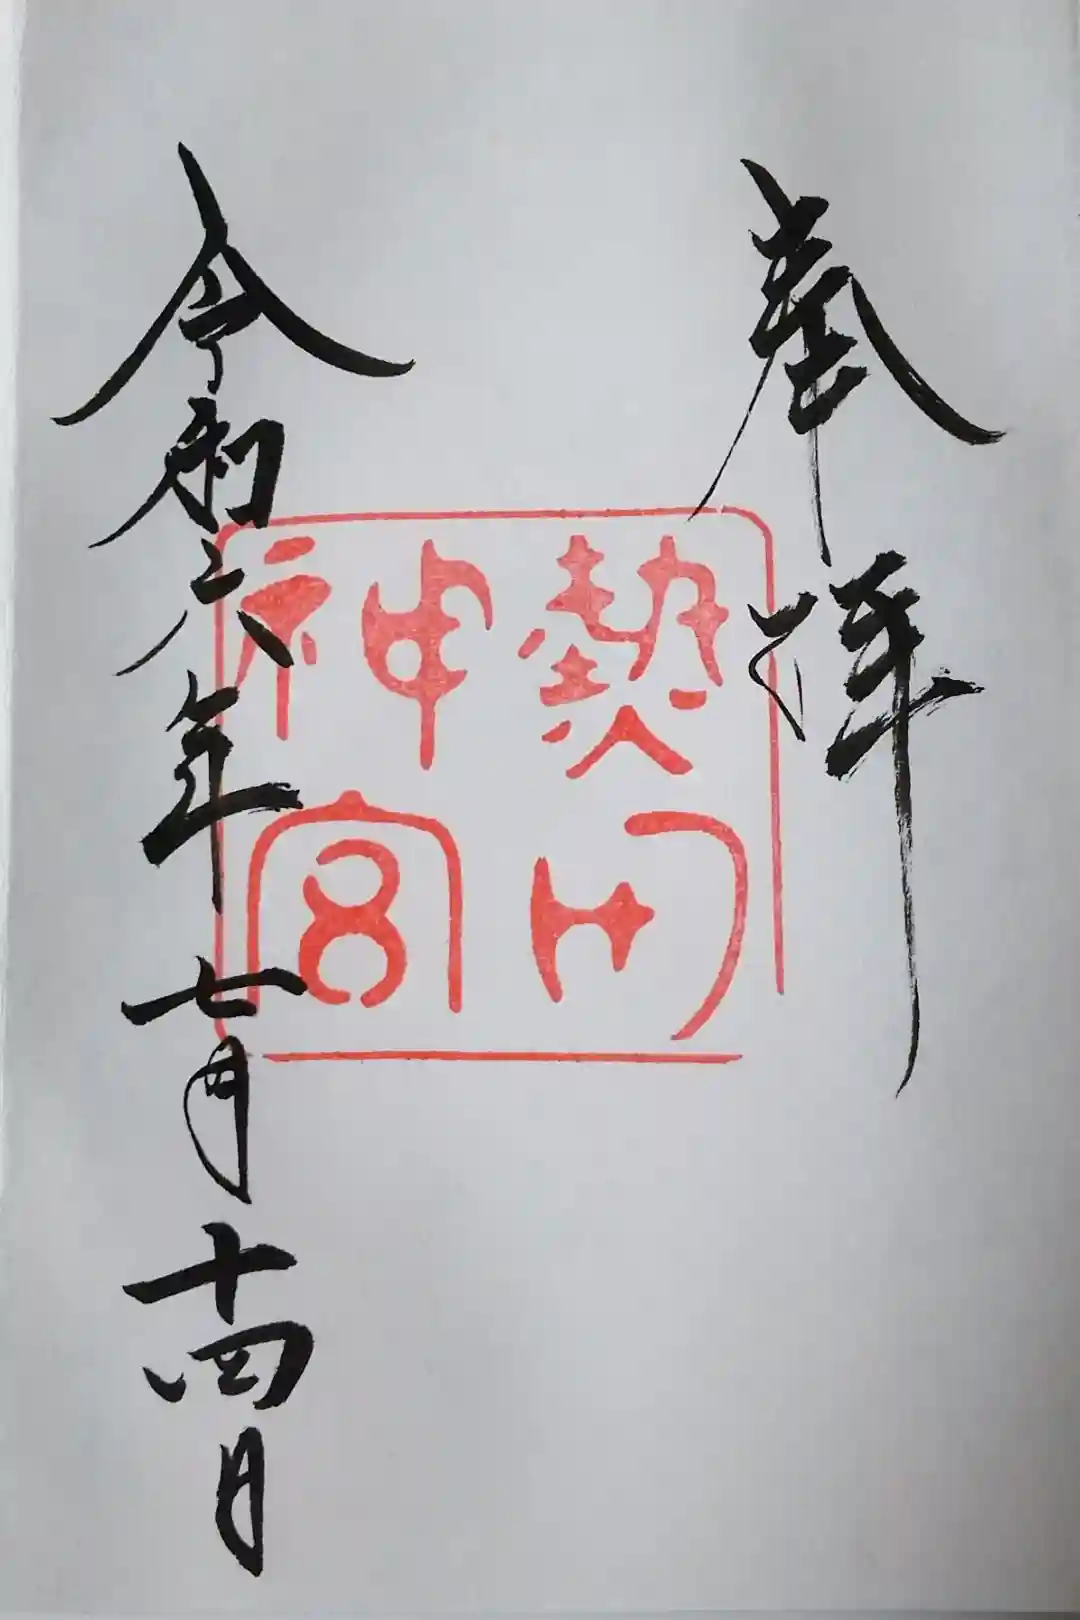 奉拝
熱田
神宮
令和六年七月十四日